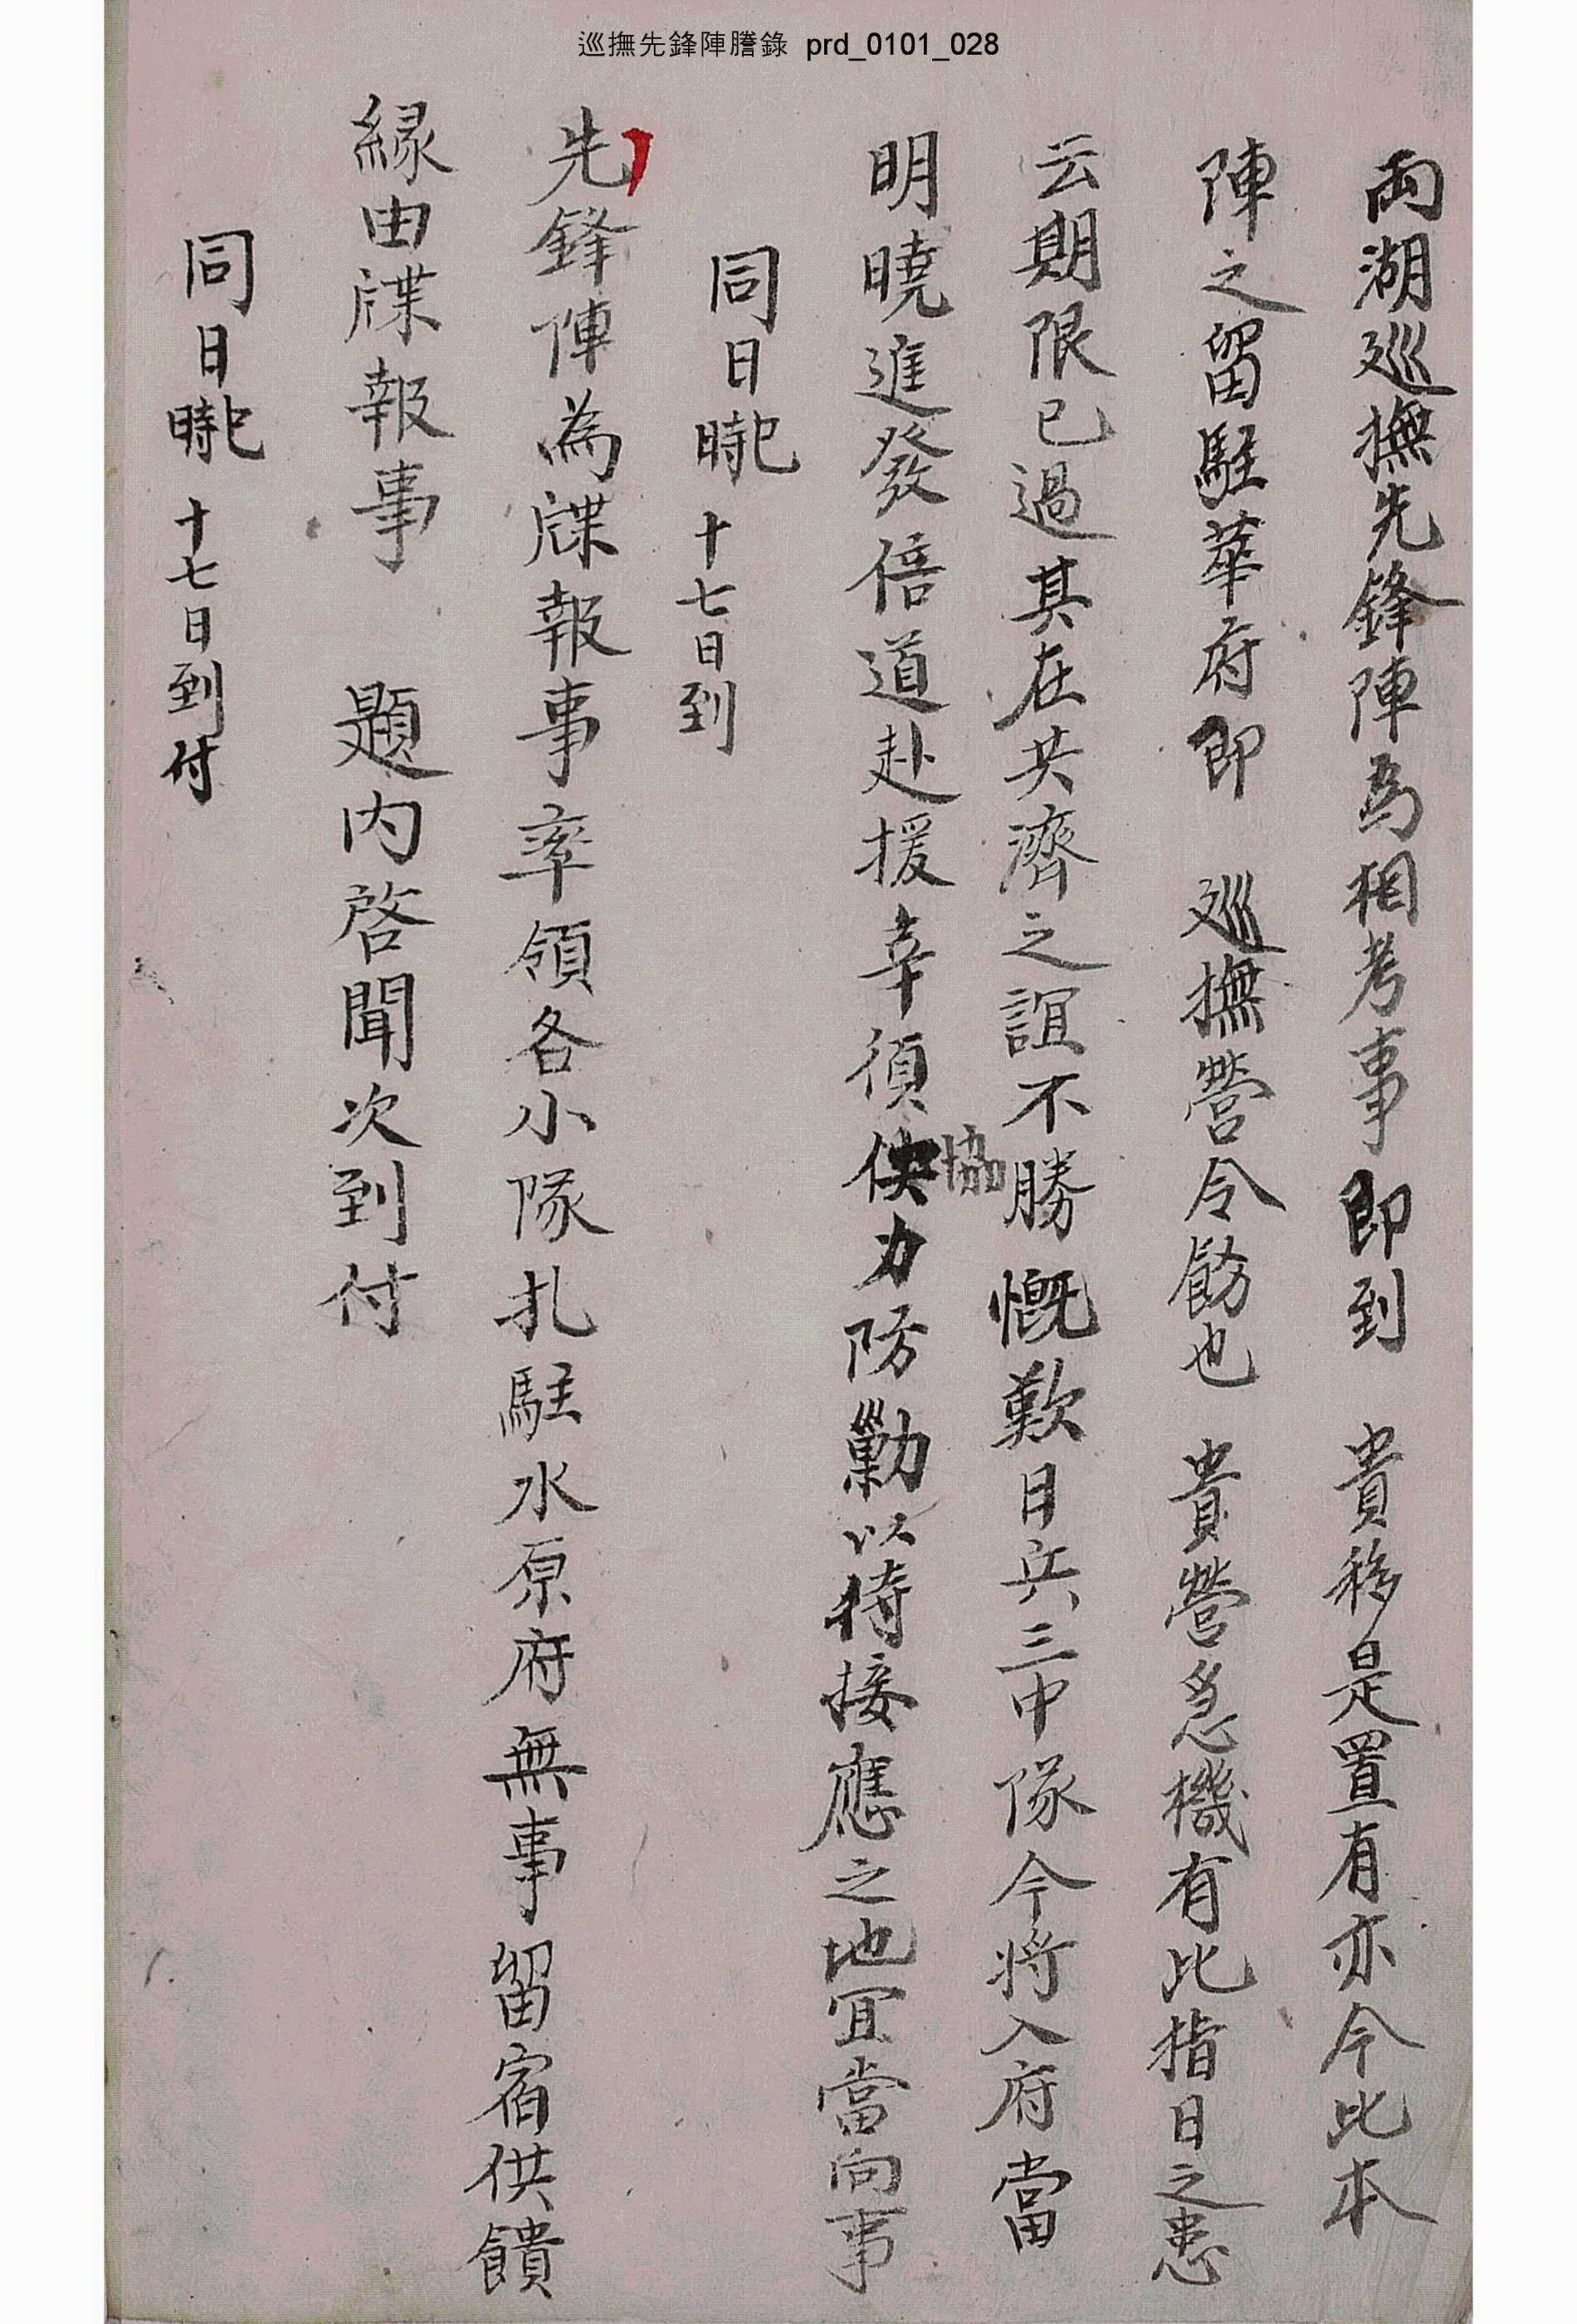 巡撫先鋒陣謄錄 prd_0101_028
両湖巡撫先鋒陣為相考事即到 貴移是置有亦今此本
陣之留駐華府即 巡撫營令飭也 貴營急機有比指日之患
云期限已過其在共濟之誼不勝慨歎日兵三中隊今將入府當
明曉進發倍道赴援幸須協力防勦以待接應之地宜當向事
同日巳時 十七日到
先鋒陣為牒報事率領各小隊扎駐水原府無事留宿供饋
緣由牒報事 題內啓聞次到付
同日巳時 十七日到付